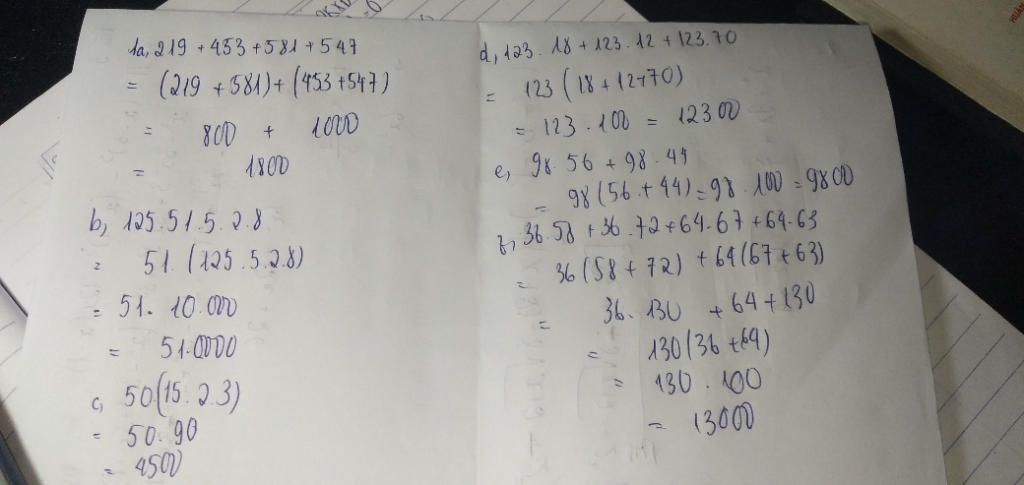 1a, 219 + 453 + 581 + 547
= (219 + 581) + (453 + 547)
= 800 + 1000
= 1800
b, 125 . 51 . 5 . 2 . 8
= 51 . (125 . 5 . 2 . 8)
= 51 . 10.000
= 51.0000
c, 50 (15 . 2 . 3)
= 50 . 90
= 4500
d, 123 . 18 + 123 . 12 + 123 . 70
= 123 (18 + 12 + 70)
= 123 . 100 = 12300
e, 98 . 56 + 98 . 44
= 98 (56 + 44) = 98 . 100 = 9800
36 . 58 + 36 . 72 + 64 . 67 + 64 . 63
= 36 (58 + 72) + 64 (67 + 63)
= 36 . 130 + 64 + 130
= 130 (36 + 64)
= 130 . 100
= 13000